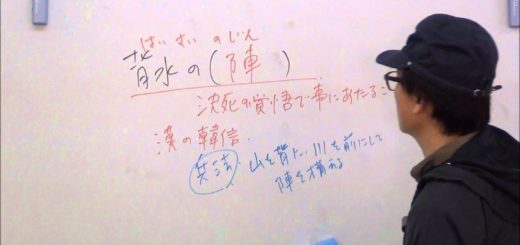 はいすいのじん
背水の(陣)
決死の覚悟で事にあたるこ
漢の韓信.
兵法 山を背に、川を前にして
陣を構える